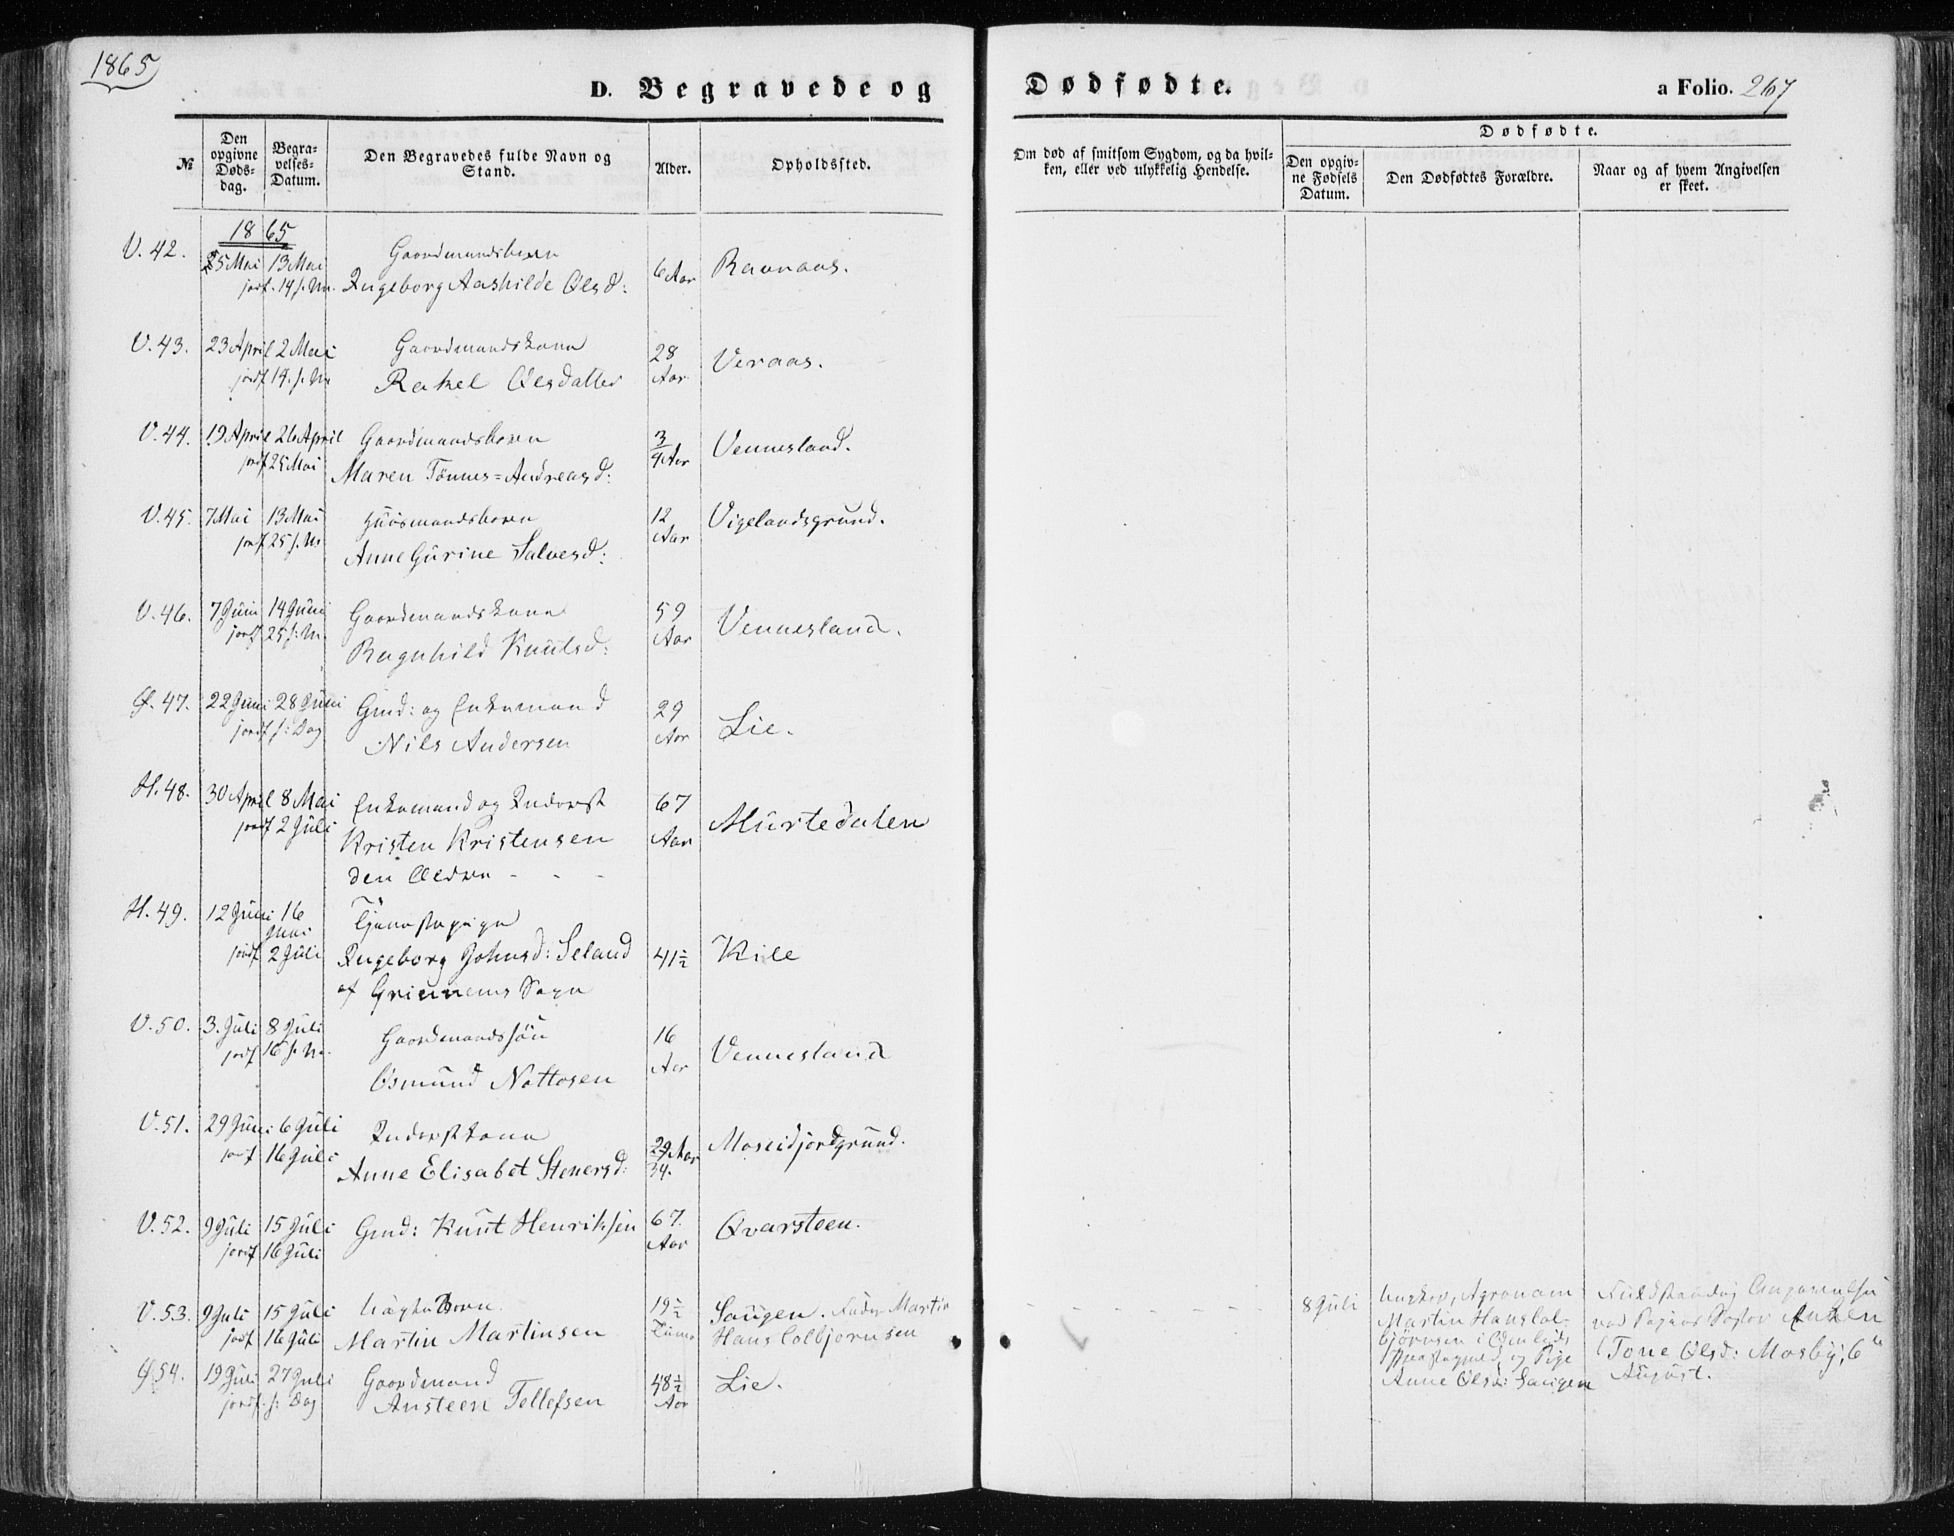 1865
D. Begravede og Dødfødte.
a Folio. 267
№
Den opgivne Døds-dag.
Begra-velses-Datum.
Den Begravedes fulde Navn og Stand.
Alder.
Opholdssted.
Om død af smitsom Sygdom, og da hvil-ken, eller ved ulykkelig Hendelse.
Dødfødte.
Den opgiv-ne Fødsels Datum.
Den Dødfødtes Forældre.
Naar og af hvem Angivelsen er skeet.
1865
V. 42. 5 Mai 13 Mai Gaardmandsbarn
jordf. 14 s. M. Ingeborg Aashilde Olsd: 6 Aar Ravnaas.
V. 43. 23 April 2 Mai Gaardmandskone 28
jordf 14. s. M Rakel Olsdatter Aar Veraas.
V. 44. 19 April 26 April Gaardmandsbarn 3/4 Aar Vennesland.
jordf 25 Mai Maren Tønnes=Andreasd:
V. 45. 7 Mai 13 Mai Huusmandsbarn 12 Vigelandsgrund.
jordf 25 s. M Anne Gurine Salvesd: Aar
V. 46. 7 Juni 14 Juni Gaardmandskone 59 Vennesland.
jordf 25 s: M. Ragnhild Knutsd: Aar
Ø. 47. 22 Juni 28 Juni Gmd: og Enkemand 29
jordf s: Dag Nils Andersen Aar Lie.
H. 48. 30 April 8 Mai Enkemand og Inderst 67
jordf 2 Juli Kristen Kristensen Aar Murtedalen
den Ældre - - -
H. 49. 12 Juni 16
Juni Tjenestepige
jordf 2 Juli Ingeborg Johnsd: Seland 41 1/2 Kile
af Grinnems Sogn
V. 50. 3. Juli 8 Juli Gaardmandssøn 16
jordf 16 s. M. Osmund Nottosen Aar Vennesland
V. 51. 29 Juni 6 Juli Inderstkone 29 Aar Moseidjordgrund.
jordf 16 Juli Anne Elisabet Stenersd: 34.
V. 52. 9 Juli 15 Juli Gmd: Knut Henriksen 67. Qvarsteen.
jordf 16 Juli Aar
V. 53. 9 Juli 15 Juli Uægte Barn 19 1/2 Saugen. Fader Martin
jordf 16 Juli Martin Martinsen Timer Hans Colbjørnsen
8 Juli
Ungkarl, Agronom
Martin Hans Col-
bjørnsen i Odenlands
Præstegjeld, og Pige
Anne Olsd: Saugen
Fuldstændig Angivelse
ved Pigens Søster Enken
Tone Olsd: Mosby, 6te
August.
Ø. 54. 19 Juli 27 Juli Gaardmand 48 1/2 Lie.
jordf. s: Dag Ansteen Tellefsen Aar